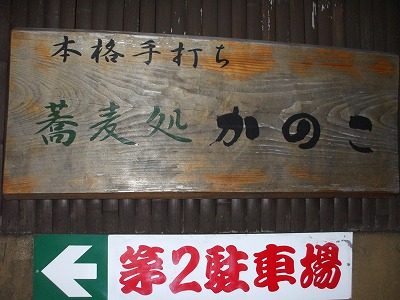 本格手打ち
蕎麦処 かのこ
第2駐車場